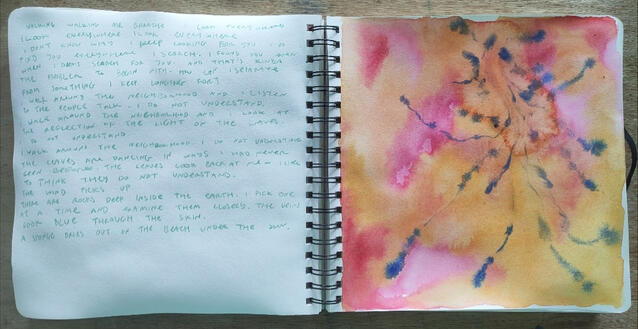 WALKING WALKING ME I LOOK EVERYWHERE
I LOOK EVERYWHERE I LOOK EVERYWHERE
I DON'T KNOW WHY I KEEP LOOKING FOR YOU I
FIND YOU I SEARCH. I FOUND YOU
WHEN I DON'T SEARCH FOR YOU. AND THAT'S KINDA
THE PROBLEM TO BEGIN WITH. HOW CAN I SEPARATE
FROM SOMETHING I KEEP LONGING FOR?
I WALK AROUND THE NEIGHBORHOOD AND I LISTEN
TO THE PEOPLE TALK. I DO NOT UNDERSTAND.
I WALK AROUND THE NEIGHBORHOOD AND I LOOK AT
THE REFLECTION OF THE LIGHT ON THE LEAVES.
I DO NOT UNDERSTAND
I WALK AROUND THE NEIGHBORHOOD. I DO NOT UNDERSTAND
THE LEAVES ARE DANCING IN WAYS I HAD NEVER
SEEN BEFORE. THE LEAVES LOOK BACK AT ME. I LIKE
TO THINK THEY DO NOT UNDERSTAND.
THE WIND PICKS UP
THERE ARE ROCKS DEEP INSIDE THE EARTH. I PICK ONE
AT A TIME AND EXAMINE THEM CLOSELY. THE VEINS
LOOK BLUE THROUGH THE SKIN.
A SPONGE DRIES OUT ON THE BEACH UNDER THE SUN.